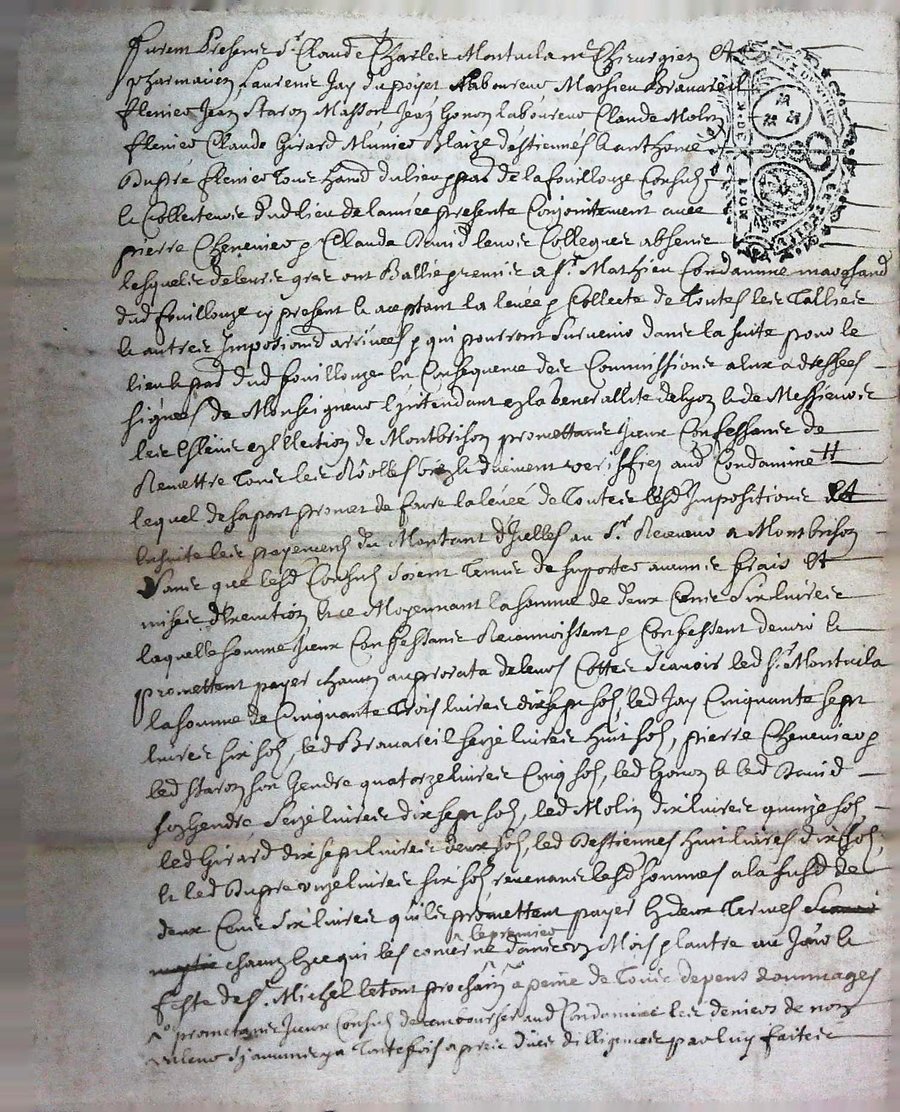 Furent Presents Sr Claude Charles Montucla me Chirurgien et
pharmacien Laurens Jay du poyet Laboureur Mathieu Bravareil
Jean Staron Masson Jean Gonon laboureur Claude Molin
Claude Girard Munier Blaize destiennes & anthoine
Dupré tous habd du lieu & par de la fouillouze Consuls
& Collecteurs dud lieu de lannée presente Conjointement avec
pierre Chenevier & Claude David leurs Collegues absents
lesquels de leurs gres ont Ballié premis a Sr Mathieu Condamine marchand
dud fouillouze cy present & aceptant la levée & Collecte de Toutes les Tallies
& autres Impositions arrivées & qui pourront survenir dans la suite pour le
lieu & par dud fouillouze En Consequence des Commissions a Eux adressées
signées de Monseigneur Lintendant en la generallité de Lyon & de Messieurs
les Esleus en Ellection de Montbrison promettants Iceux Confessants de
Remettre Tous les Rôolles duement veriffiez aud Condamine
lequel de sa part promet de faire la levée de Toutes lesd Impositions et
En suite les payements du Montant dIcelles au Sr Receveur a Montbrison
sans que lesd Consuls soient Tenus de supporter aucuns frais et
mises dExecution & ce Moyennant la somme de deux Cents six livres
laquelle somme Iceux Confessants Reconnoissent & Confessent devoir &
promettent payer chacun au prorata de leurs Cottes scavoir led Sr Montucla
la somme de Cinquante Trois livres dix sept sols, led Jay Cinquante sept
livres six sols, led Bravareil seize livres huit sols, pierre Chenevier &
led Staron son Gendre quatorze livres Cinq sols, led Gonon & led David
son gendre seize livres dix sept sols, led Molin dix livres quinze sols
led Girard dix sept livres deux sols, led Destiennes huit livres dix sols,
& led Dupre onze livres six sols revenants lesd sommes a la susd de
deux Cents six livres quils promettent payer En deux Termes
chacun En ce qui les concerne dans Mois & lautre au Jour &
le premier
feste de St Michel le tout prochain a peine de Tous depens dommages
promettants Iceux Consuls de rembourser aud Condamine les deniers de non
valeur sy aucuns y a Toutefois apres dues dilligences par luy faites
LION